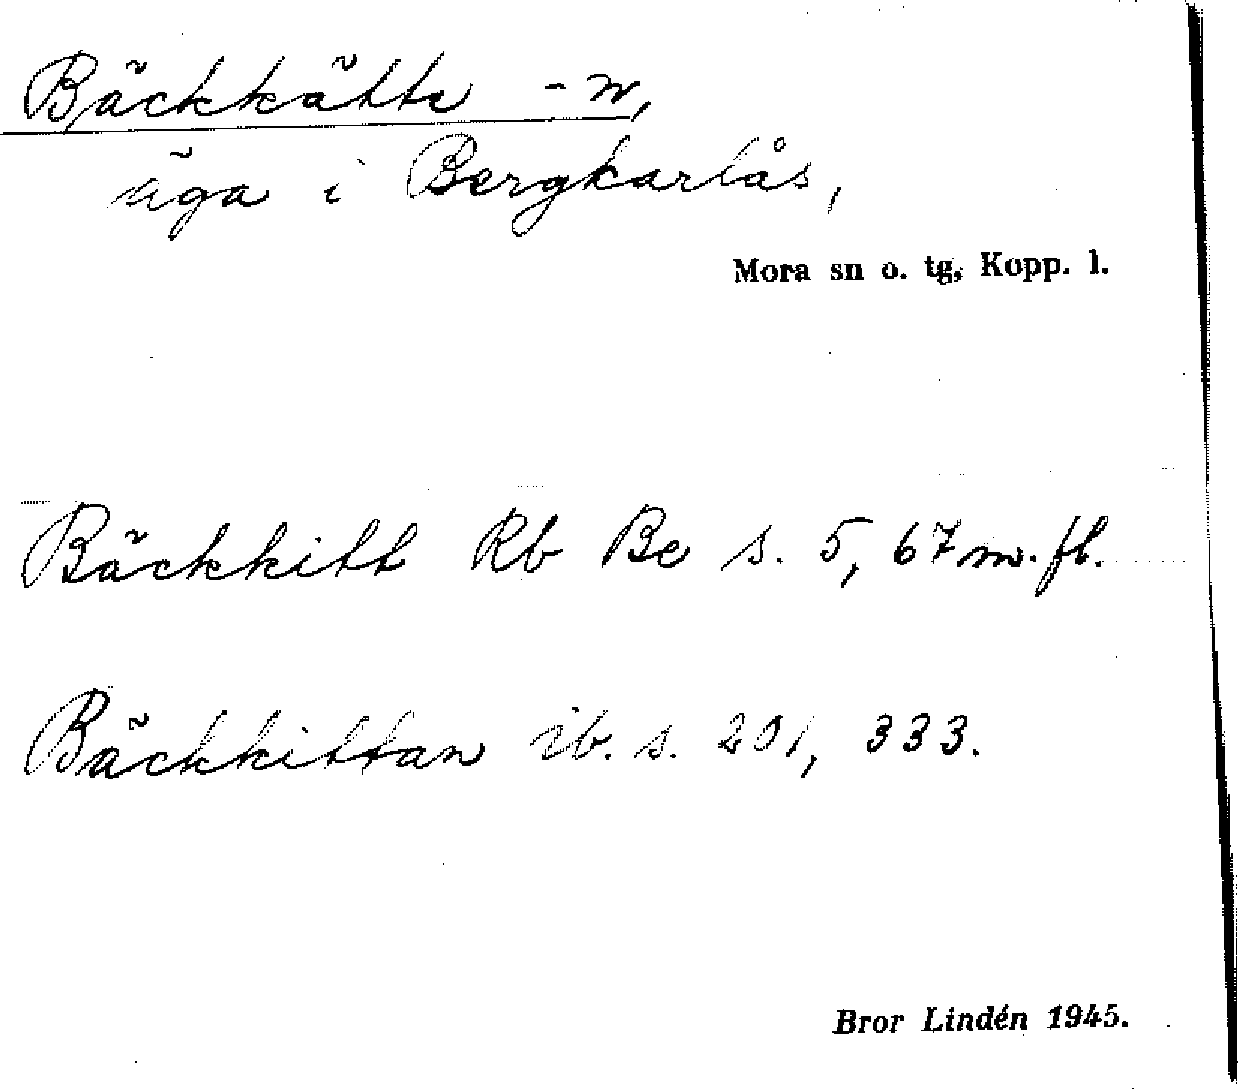 Bäckkätte -n,
äga i Bergkarlås,
Mora sn o. tg, Kopp. l.
Bäckkitt Rb Be s. 5, 67 m. fl.
Bäckkittan ib. s. 201, 333.
Bror Lindén 1945.